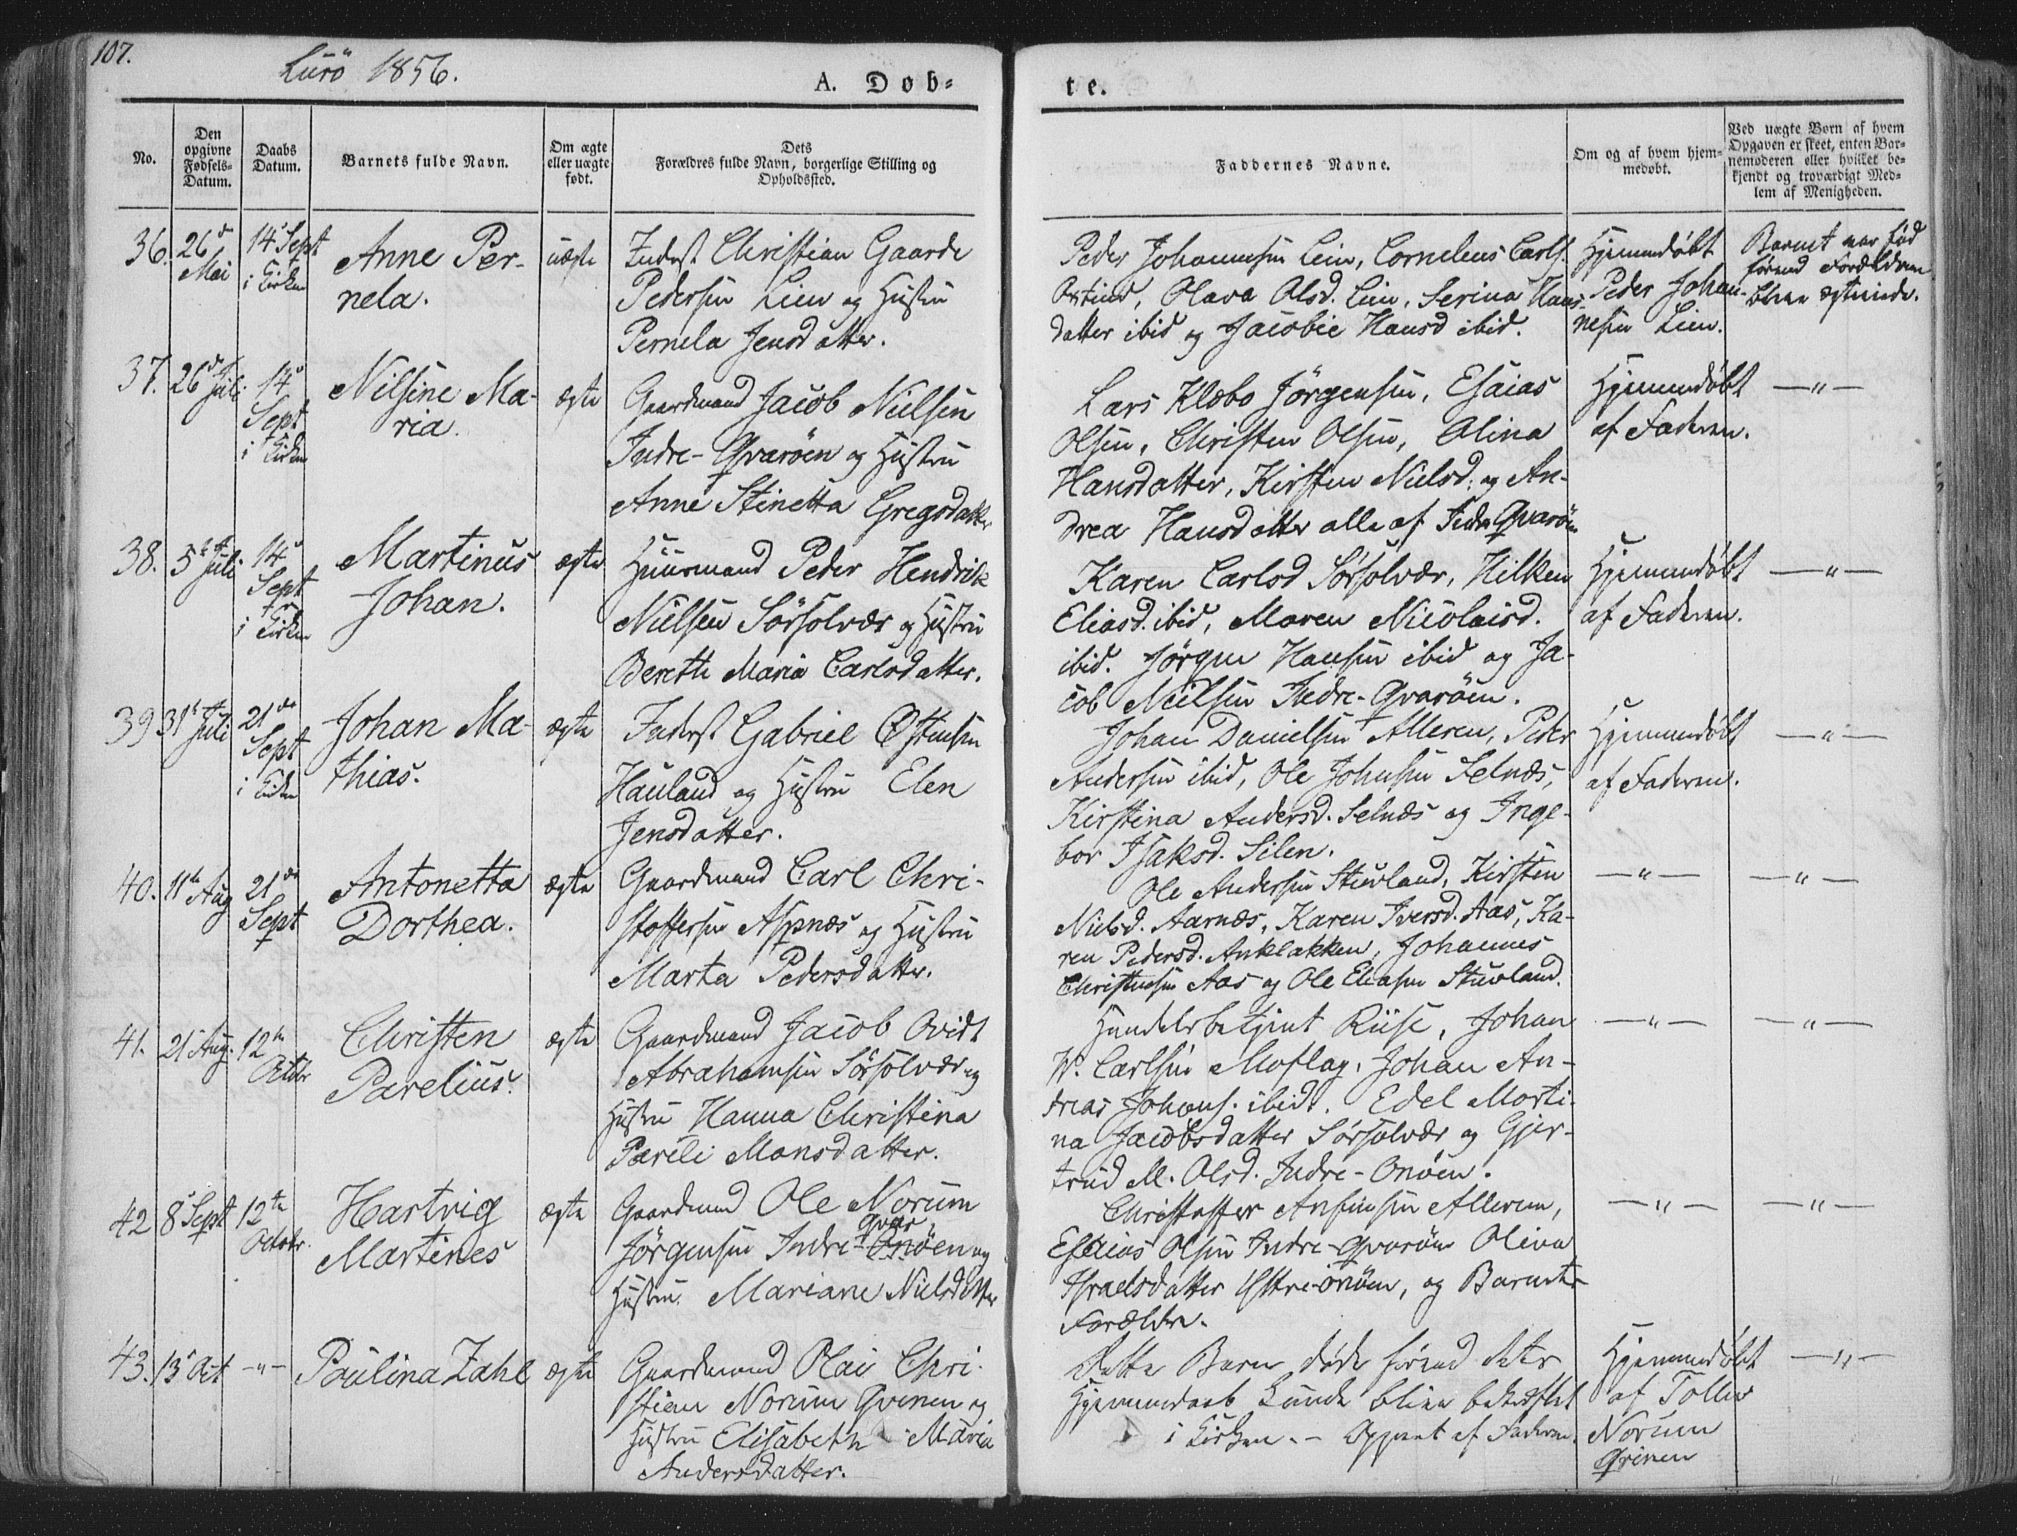 107.
Lurö 1856.
A. Døb=
te.
No.
Den opgivne Fødsels-Datum.
Daabs Datum.
Barnets fulde Navn.
Om ægte eller uægte født.
Dets Forældres fulde Navn, borgerlige Stilling og Opholdssted.
Faddernes Navne.
Om og af hvem hjemmedøbt.
Ved uægte Børn af hvem Opgaven er skeet, enten Barnemoderen eller hvilket bekjendt og troværdigt Medlem af Menigheden.
36. 26d Mai
14 Sept i Kirken
Anne Per-
nela.
uægte
Inderst Christian Gaarde
Pedersen Lien og Hustru
Pernela Jensdatter.
Peder Johannesen Lien, Cornelius Carls.
, Olava Olsd. Lien, Serina Hans-
datter ibid og Jacobie Hansd ibid.
Hjemmedøbt
Peder Johan-
nesen Lien.
Barnet var fød
førend Forældrene
bleve ægteviede.
37. 26d Juli
14d Sept i Kirken
Nilsine Ma-
ria.
ægte
Gaardmand Jacob Nielsen
Indre-Qvarøen og Hustru
Anne Stinetta Gregsdatter
Lars Klæbo Jörgensen, Esaias
Olsen, Christen Olsen, Olina
Hansdatter, Kirsten Nielsd. og An-
drea Hansdatter alle af Indre Qvarøen
Hjemmedøbt
af Faderen.
—"—
38. 5te Juli
14d Sept i Kirken
Martinus
Johan.
ægte
Huusmand Peder Hendrik
Nielsen Sörsolvær og Hustru
Bereth Maria Carlsdatter.
Karen Carlsd Sörsolvær, Hilken
Eliasd. ibid, Maren Nicolaisd.
ibid. Jörgen Hansen ibid og Ja-
cob Nielsen Indre-Qvarøen.
Hjemmedøbt
af Faderen.
—"—
39 31te Juli
21de Sept i Kirken
Johan Ma-
thias.
ægte
Inderst Gabriel Østensen
Hauland og Hustru Elen
Jensdatter.
Johan Danielsen Alleren, Peder
Andersen ibid, Ole Johnsen Selnæs,
Kirstina Andersd. Selnæs og Inge-
bor Isaksd. Silen.
Hjemmedøbt
af Faderen.
—"—
40. 11te Aug
21de Sept
Antonetta
Dorthea.
ægte
Gaardmand Carl Chri-
stoffersen Aspnæs og Hustru
Marta Pedersdatter.
Ole Andersen Stuvland, Kirsten
Nielsd. Aarnæs, Karen Iversd. Aas, Ka-
ren Pedersd. Anklakken, Johannes
Christensen Aas og Ole Eliasen Stuvland.
—"—
—"—
41. 21 Aug.
12te Octobr
Christen
Parelius.
ægte
Gaardmand Jacob Ovidt
Abrahamsen Sörsolvær og
Hustru Hanna Christina
Pareli Monsdatter.
Handelsbetjent Riise, Johan
W. Carlsen Moflag, Johan An-
dreas Johans. ibidt. Edel Marti-
na Jacobsdatter Sörsolvær og Gjer-
trud M. Olsd. Indre-Onöen.
—"—
—"—
42 8 Sept
12te Octobr.
Hartvig
Martines
ægte
Gaardmand Ole Norum
Jörgensen Indre-Qvarøen og
Hustru Mariane Nielsdatter
Christoffer Anfinsen Alleren,
Esaias Olsen Indre-Qvarøen Oliva
Israelsdatter Yttre-onöen, og Barnets
Forældre.
—"—
—"—
43. 13 Oct
—"—
Paulina Zahl
ægte
Gaardmand Olai Chri-
stian Norum Qvinen og
Hustru Elisabeth Maria
Andersdatter.
Dette Barn døde førend dets
Hjemmedaab kunde blive bekræftet
i Kirken. – Opgivet af Faderen.
Hjemmedøbt
af Toller
Norum
Qvinen
—"—